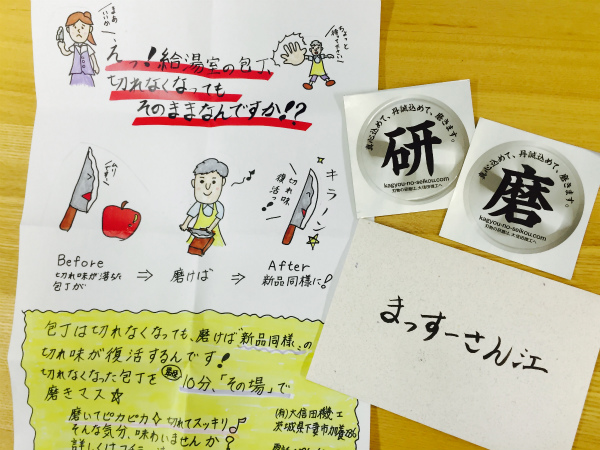 まあいいか
ちょっと待ってさい!
えっ!給湯室の包丁、
切れなくなっても
そのままなんですか!?
ムリっす…
切れ味復活っ!
キラーン
Before
切れ味が落ちた
包丁が
⇒
磨けば
⇒
After
新品同様に!
包丁は切れなくなっても、磨けば"新品同様"の
切れ味が復活するんです!
切れなくなった包丁を 最短 10分、「その場」で
磨きマス☆
磨いてピカピカ☆切れてスッキリ♪
そんな気分、味わいませんか
詳しくは
(有)大信田機工
茨城県下妻市加養286
真心込めて、丹誠込めて、磨きます。
研
kagyou-no-seikou.com
刃物の研磨は、大信田機工へ
真心込めて、丹誠込めて、磨きます。
磨
kagyou-no-seikou.com
刃物の研磨は、大信田機工へ
まっすーさん江